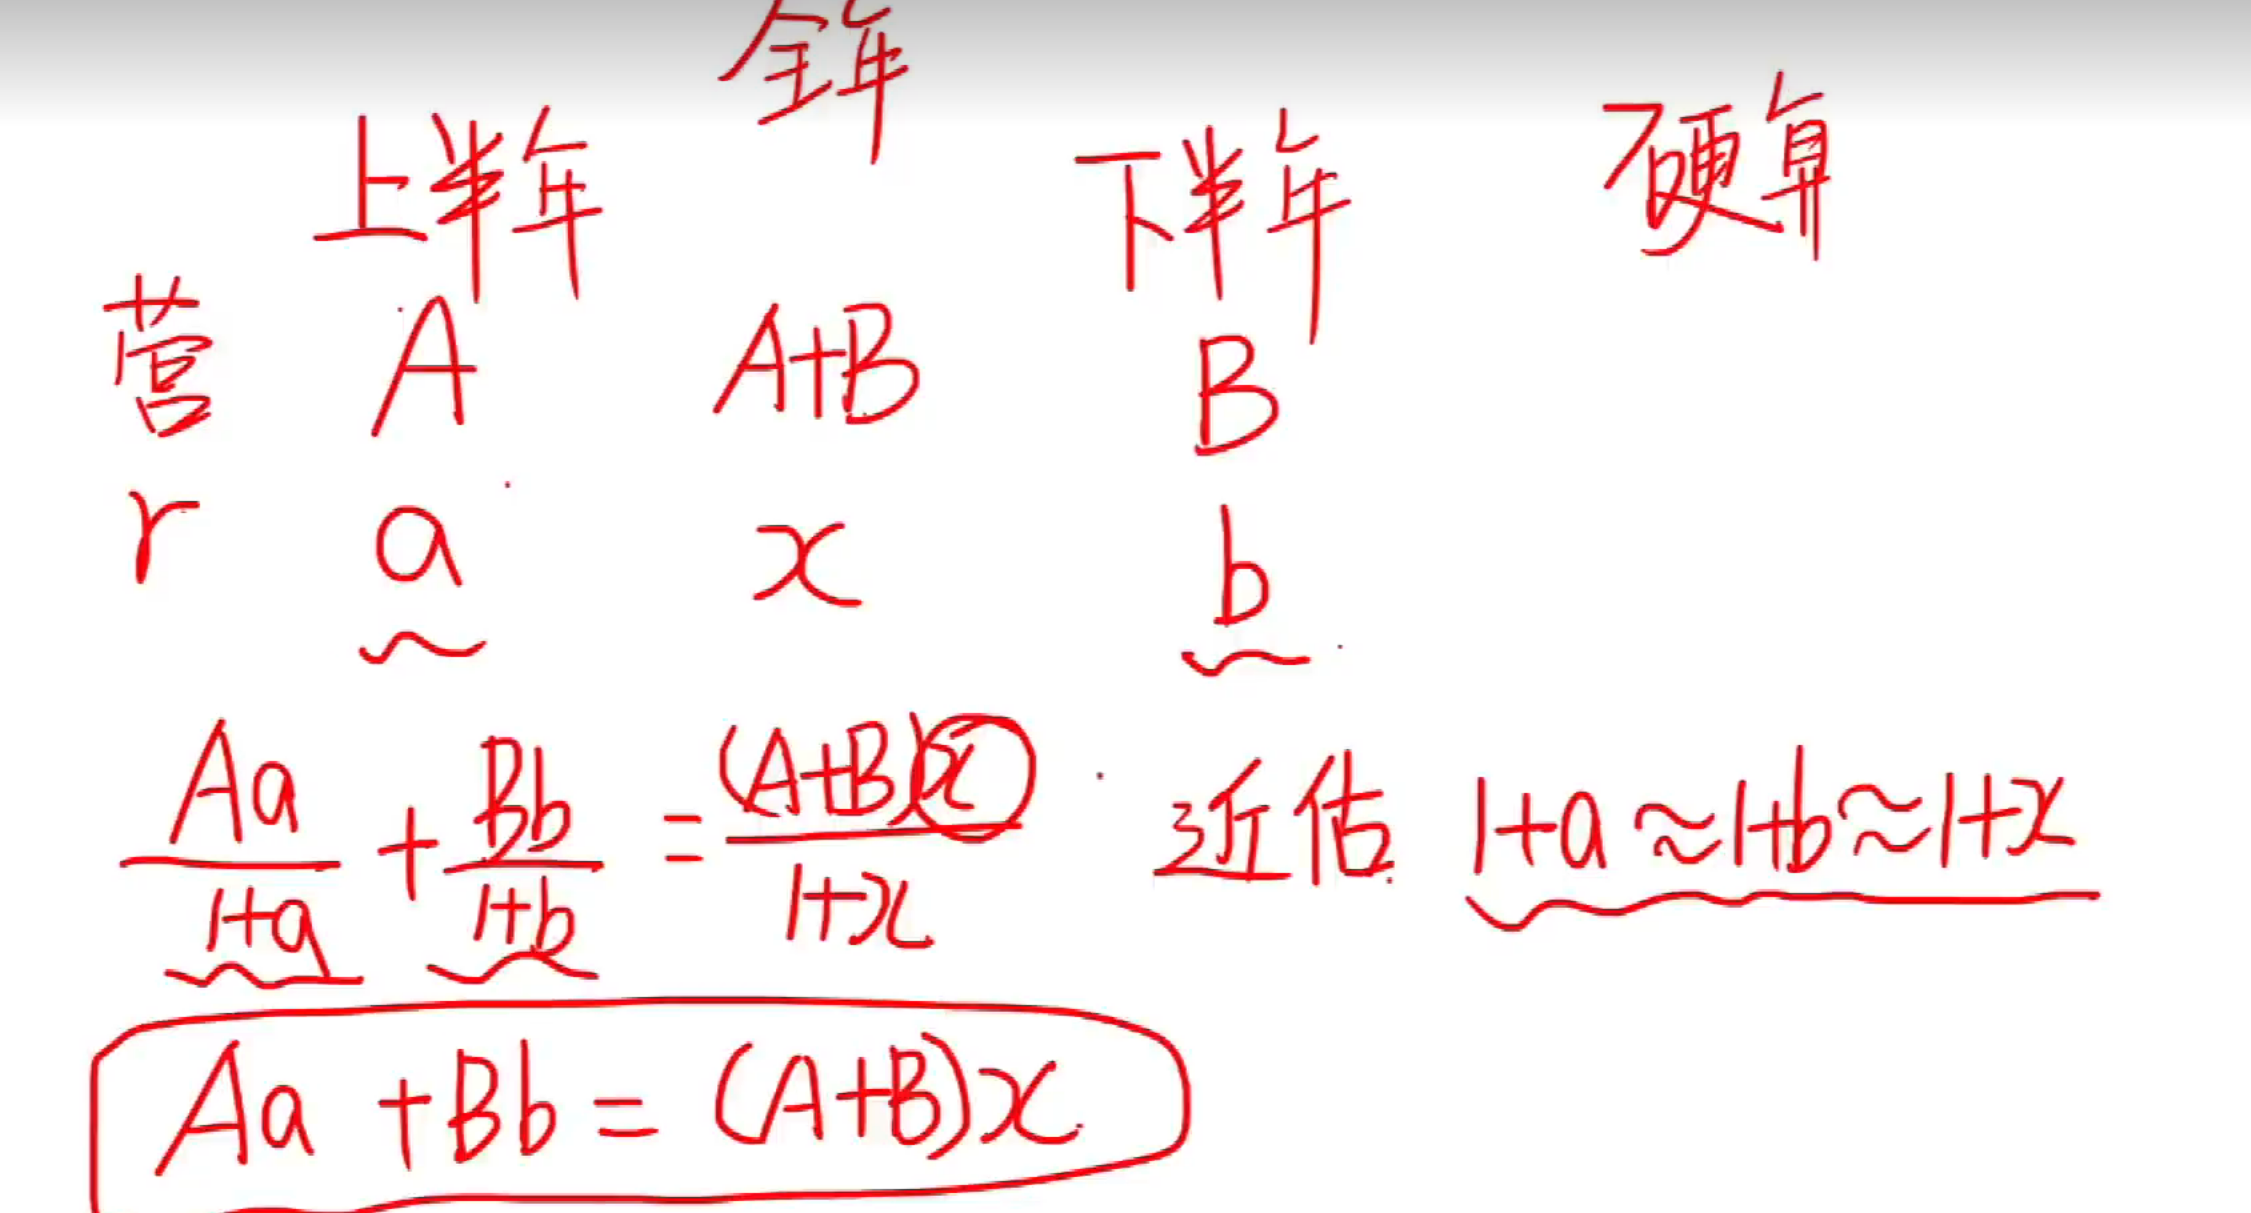 全年
上半年 下半年 硬算
营 A A+B B
r a x b
Aa/(1+a) + Bb/(1+b) = (A+B)x/(1+x) 近估 1+a≈1+b≈1+x
Aa+Bb=(A+B)x